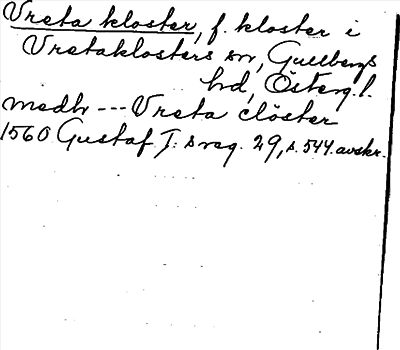 Vreta kloster, f. kloster i
Vretaklosters sn, Gullbergs
hd, Österg. l.
medh --- Vreta clöster
1560 Gustaf I:s reg. 29, s. 544. avskr.